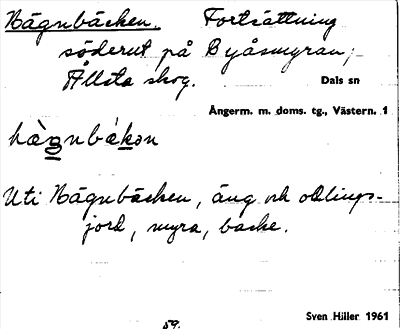 Bågnbäcken. Fortsättning
söderut på Byåsmyran;
Ållsta skog.
Dals sn
Ångerm. m. doms. tg., Västern. 1
Uti Bågnbäcken, äng och odlings-
jord, myra, backe.
Sven Hiller 1961
59.